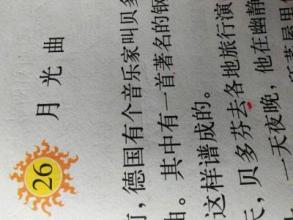 26 月光曲
，德国有个音乐家叫贝多
。其中有一首著名的钢
这样谱成的。
，贝多芬去各地旅行演
一天夜晚，他在幽静